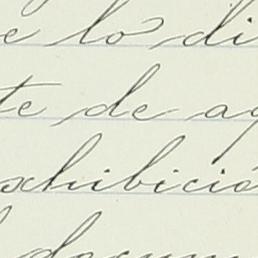 e lo di
te de ag
xhibició
docum